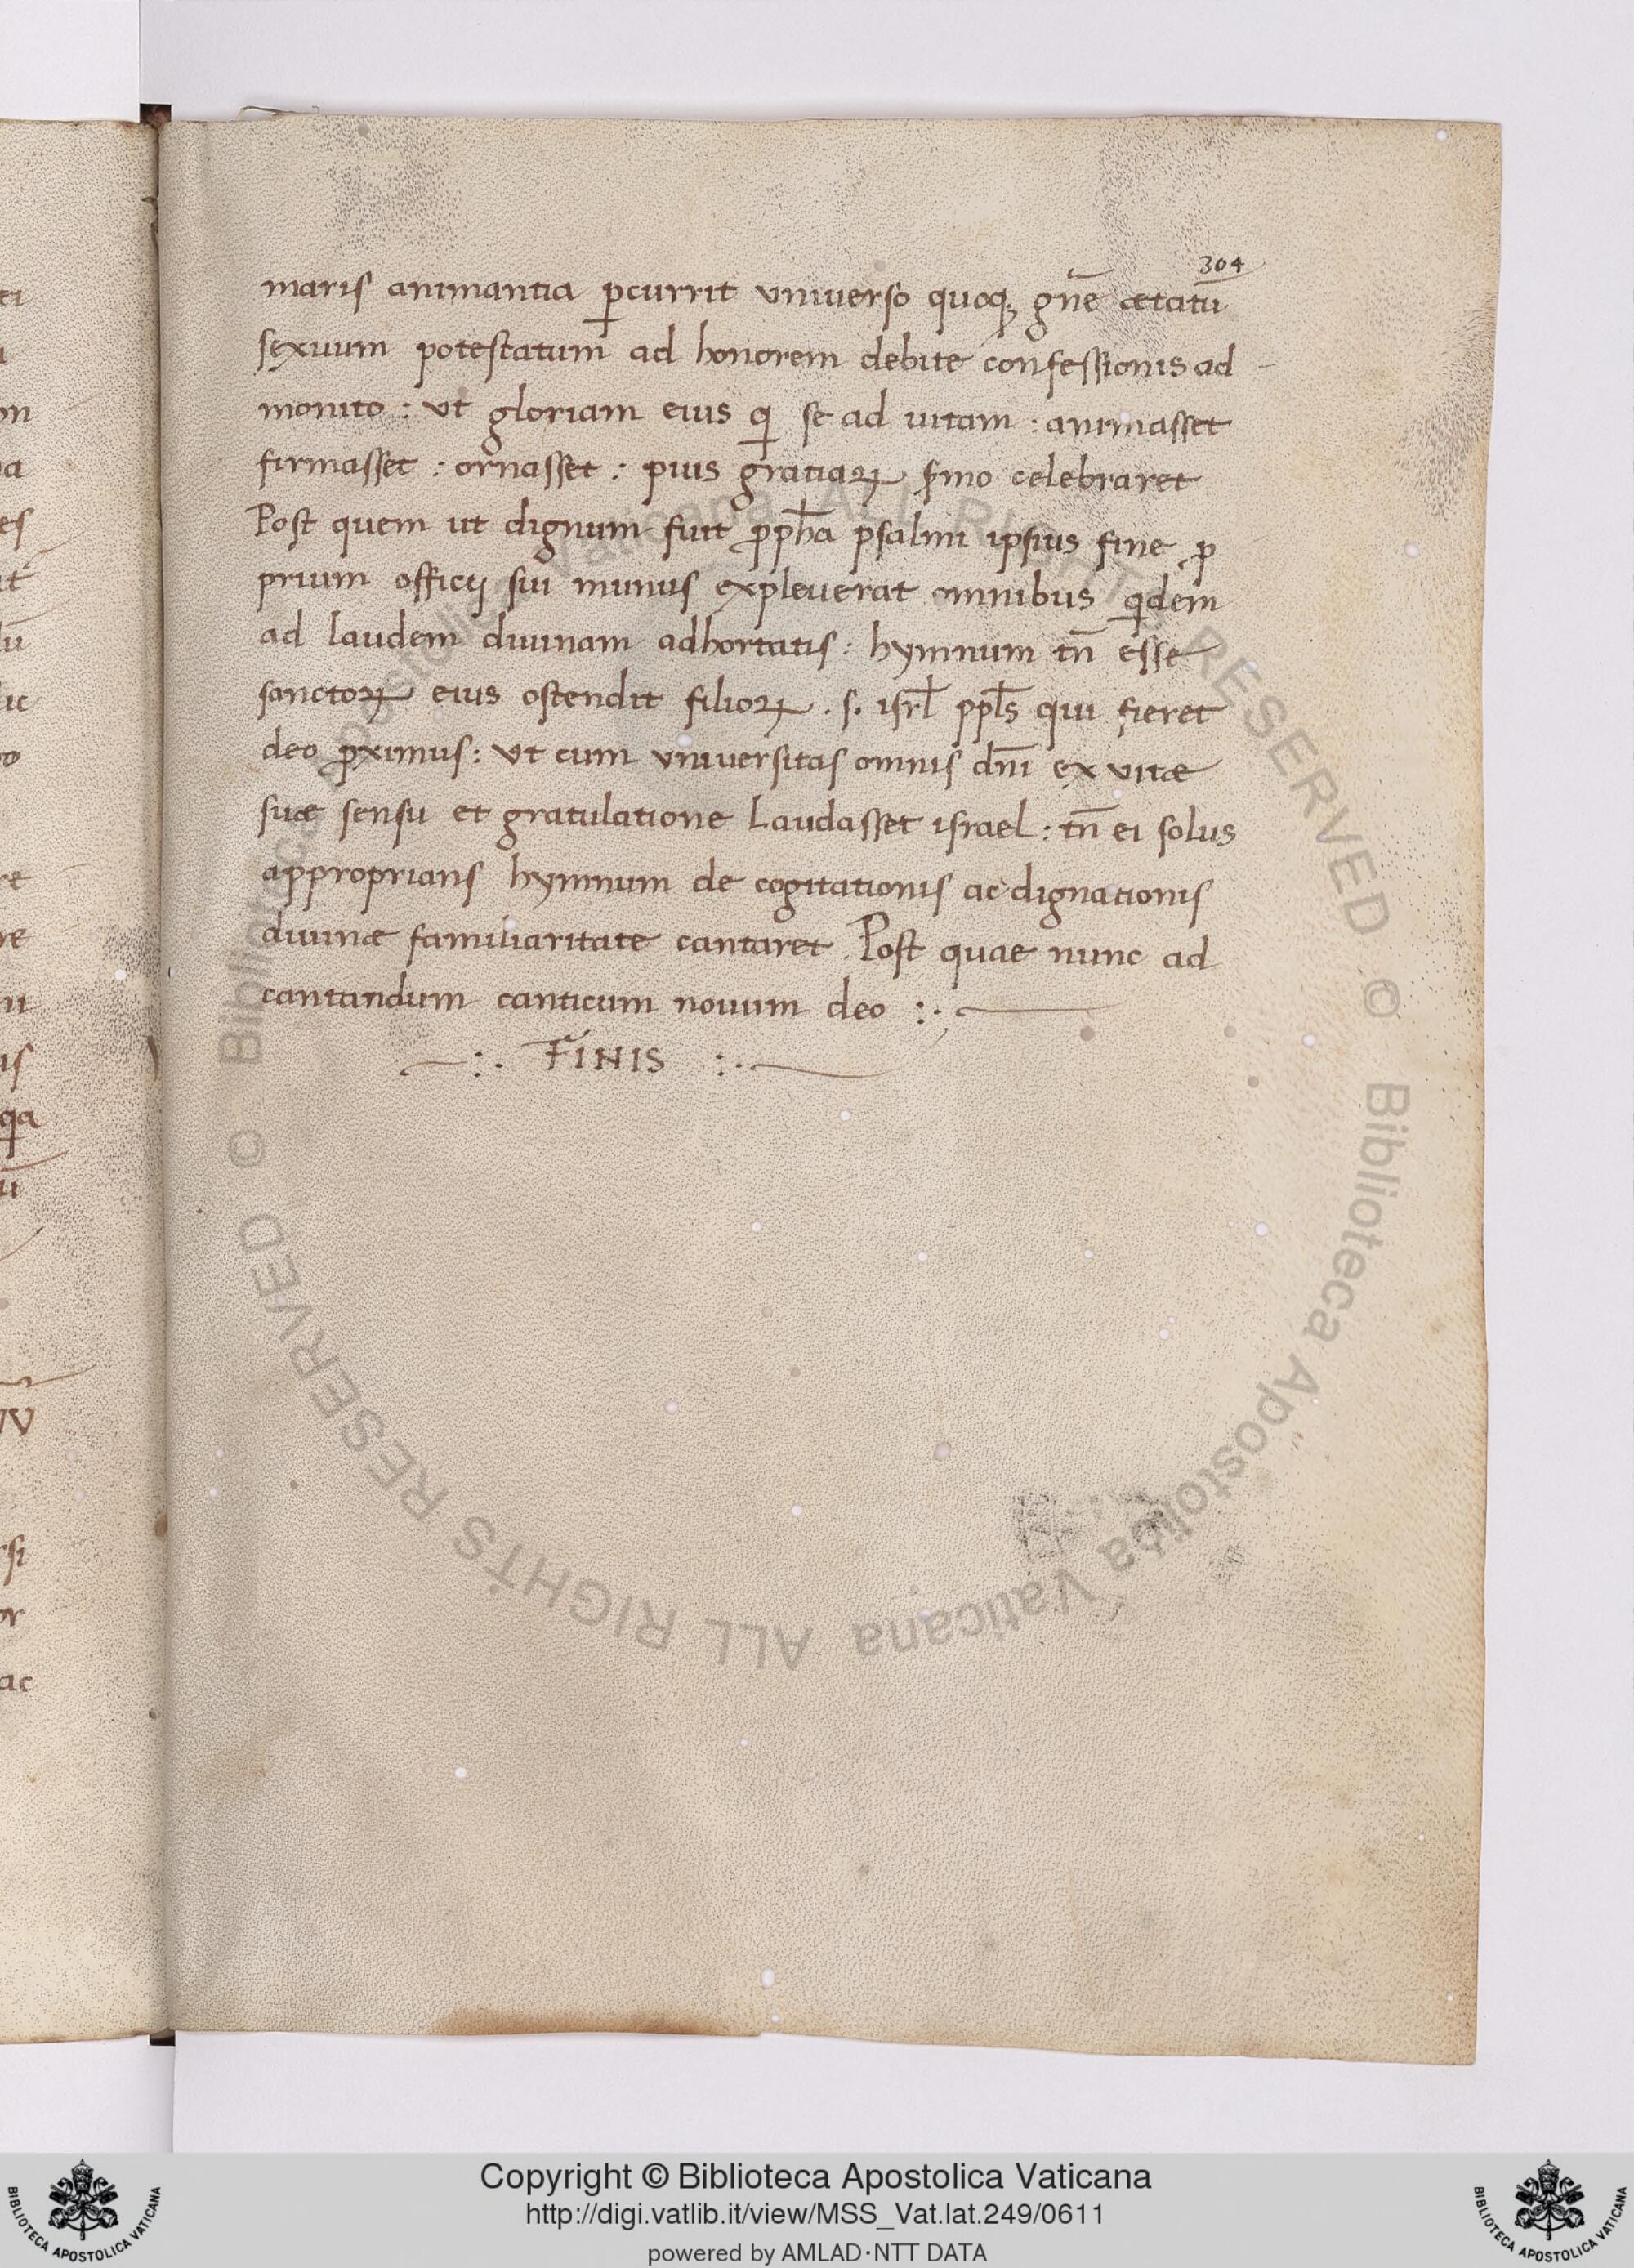 304
maris animantia ꝑcurrit vniuerso quoqꝫ gn̄e ætatū
sexuum potestatum ad honorem debite confessionis ad
monito : vt gloriam eius qͥ se ad uitam : animasset
firmasset : ornasset : pius gratiaꝝ s̄mo celebraret
Post quem ut dignum fuit ꝓpħa psalmi ipsius fine ꝓ
prium officij sui munus expleuerat omnibus qͥdem
ad laudem diuinam adhortatis : hymnum tn̄ esse
sanctoꝝ eius ostendit filioꝝ . s. isrl̄ ppl̄s qui fieret
deo ꝓximus : vt cum vniuersitas omnis dn̄i ex vitæ
suæ sensu et gratulatione laudasset israel : tn̄ ei solus
approprians hymnum de cogitationis ac dignationis
diuinæ familiaritate cantaret . Post quae nunc ad
cantandum canticum nouum deo :·
:· FINIS :·
ei
on
a
es
it
lū
ic
o
re
re
u
is
qa
ū
IV
rsi
or
ac
© Biblioteca Apostolica Vaticana ALL RIGHTS RESERVED © Biblioteca Apostolica Vaticana ALL RIGHTS RESERVED
BIBLIOTECA APOSTOLICA VATICANA
Copyright © Biblioteca Apostolica Vaticana
http://digi.vatlib.it/view/MSS_Vat.lat.249/0611
powered by AMLAD·NTT DATA
BIBLIOTECA APOSTOLICA VATICANA